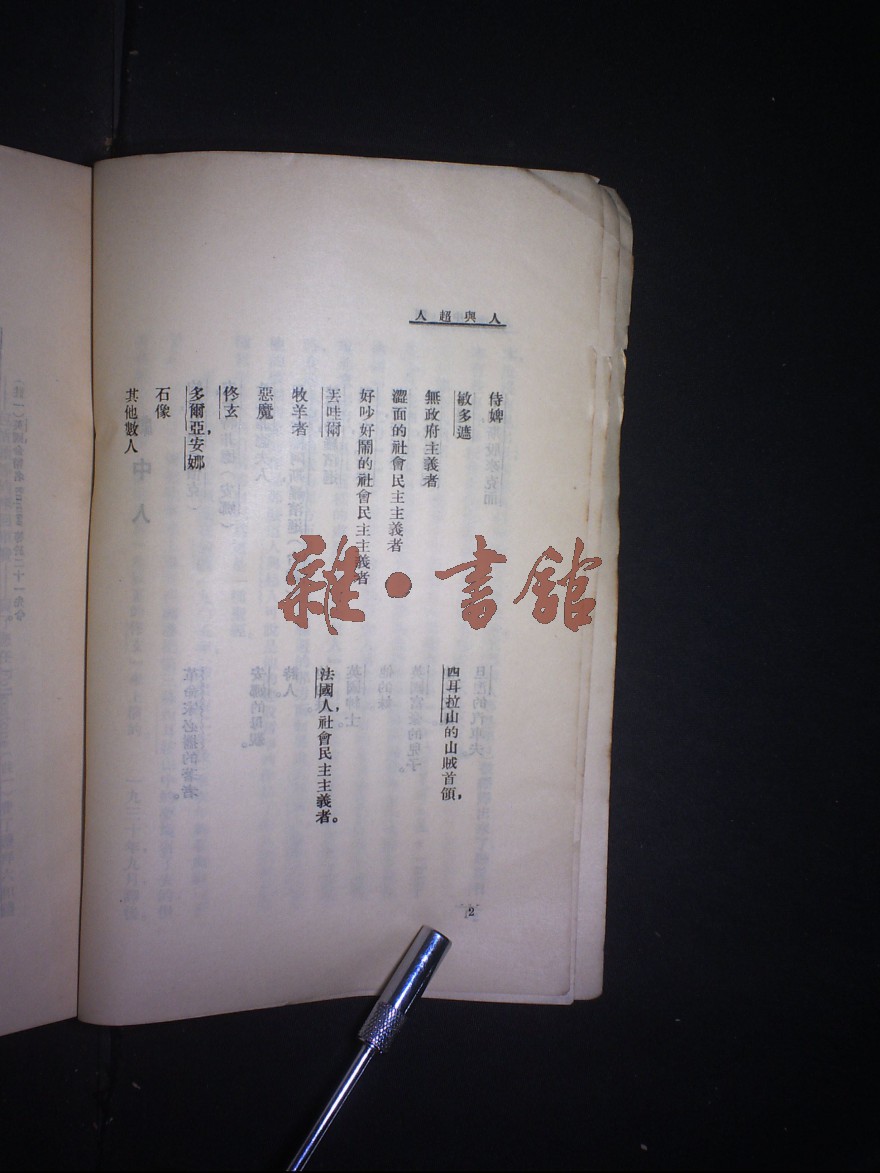 人與超人
侍婢
敏多遮 西耳拉山的山賊首領，
無政府主義者
澀面的社會民主主義者
好吵好鬧的社會民主主義者
丟哇爾 法國人，社會民主主義者。
牧羊者
惡魔
佟玄
多爾亞，安娜
石像
其他數人
2
雜·書館